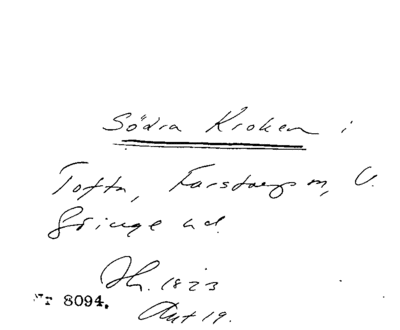 Södra Kroken i
Tofta, Farstorp sn, V.
Göinge hd.
Jh. 1823
Nr 8094.
Ant 19.